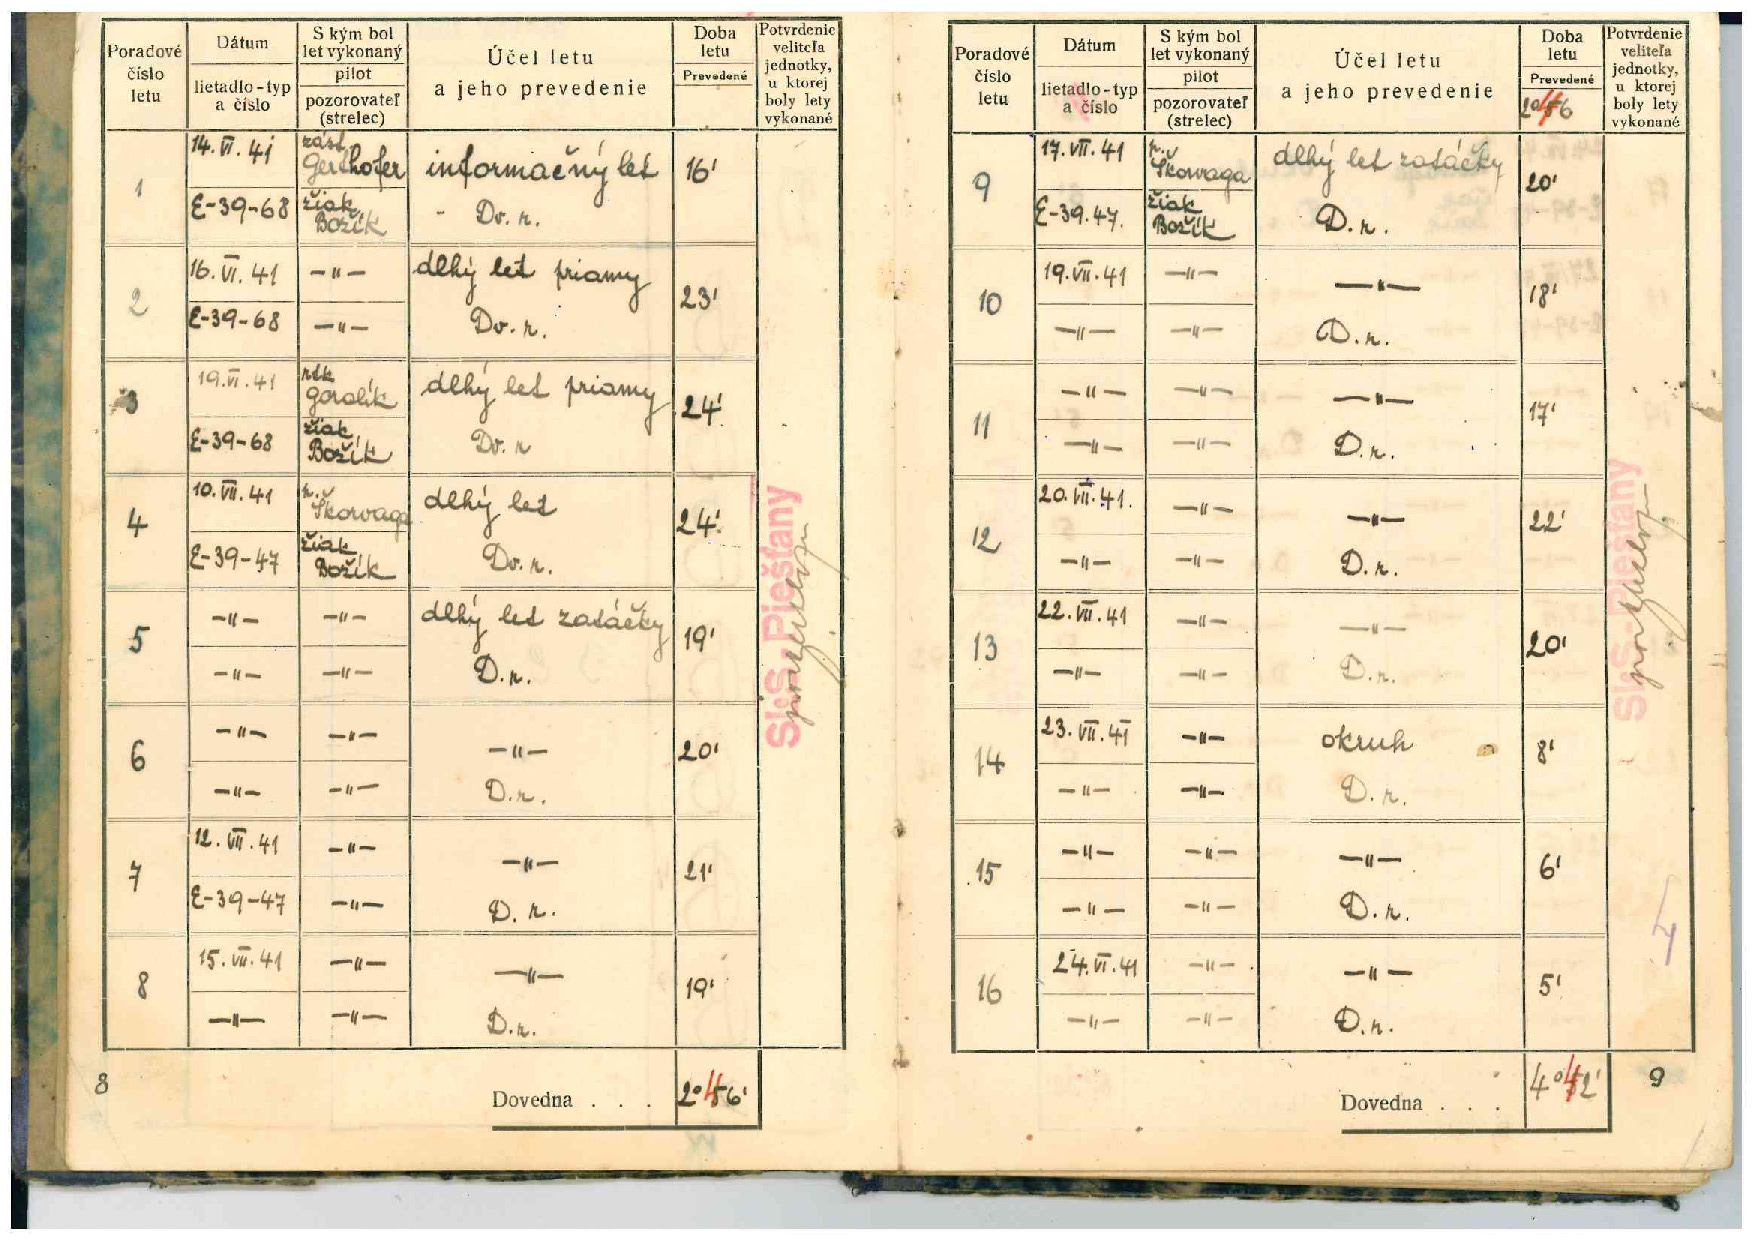 Poradové číslo letu
Dátum
lietadlo-typ a číslo
S kým bol let vykonaný
pilot
pozorovateľ (strelec)
Účel letu
a jeho prevedenie
Doba letu
Prevedené
Potvrdenie veliteľa jednotky, u ktorej boly lety vykonané
1
14.VI.41
Gerthofer
informačný let
16'
E-39-68
žiak Božík
Dv. r.
2
16.VI.41
—"—
dlhý let priamy
23'
E-39-68
—"—
Dv. r.
3
19.VI.41
rtk Goralik
dlhý let priamy
24'
E-39-68
žiak Božík
Dv. r
4
10.VII.41
Škovaga
dlhý let
24'
E-39-47
žiak Božík
Dv. r.
5
—"—
—"—
dlhý let zatáčky
19'
—"—
—"—
D.r.
6
—"—
—"—
—"—
20'
—"—
—"—
D.r.
7
12.VII.41
—"—
—"—
21'
E-39-47
—"—
D. r.
8
15.VII.41
—"—
—"—
19'
—"—
—"—
D.r.
SlS. Piešťany
8
Dovedna . . .
Poradové číslo letu
Dátum
lietadlo-typ a číslo
S kým bol let vykonaný
pilot
pozorovateľ (strelec)
Účel letu
a jeho prevedenie
Doba letu
Prevedené
Potvrdenie veliteľa jednotky, u ktorej boly lety vykonané
9
17.VII.41
Škovaga
dlhý let zatáčky
20'
E-39.47.
žiak Božík
D.r.
10
19.VII.41
—"—
—"—
18'
—"—
—"—
D.r.
11
—"—
—"—
—"—
17'
—"—
—"—
D.r.
12
20.VII.41.
—"—
—"—
22'
—"—
—"—
D.r.
13
22.VII.41
—"—
—"—
20'
—"—
—"—
D.r.
14
23.VII.41
—"—
okruh
8'
—"—
—"—
D.r.
15
—"—
—"—
—"—
6'
—"—
—"—
D.r.
16
24.VI.41
—"—
—"—
5'
—"—
—"—
D.r.
SlS. Piešťany
Dovedna . . .
9